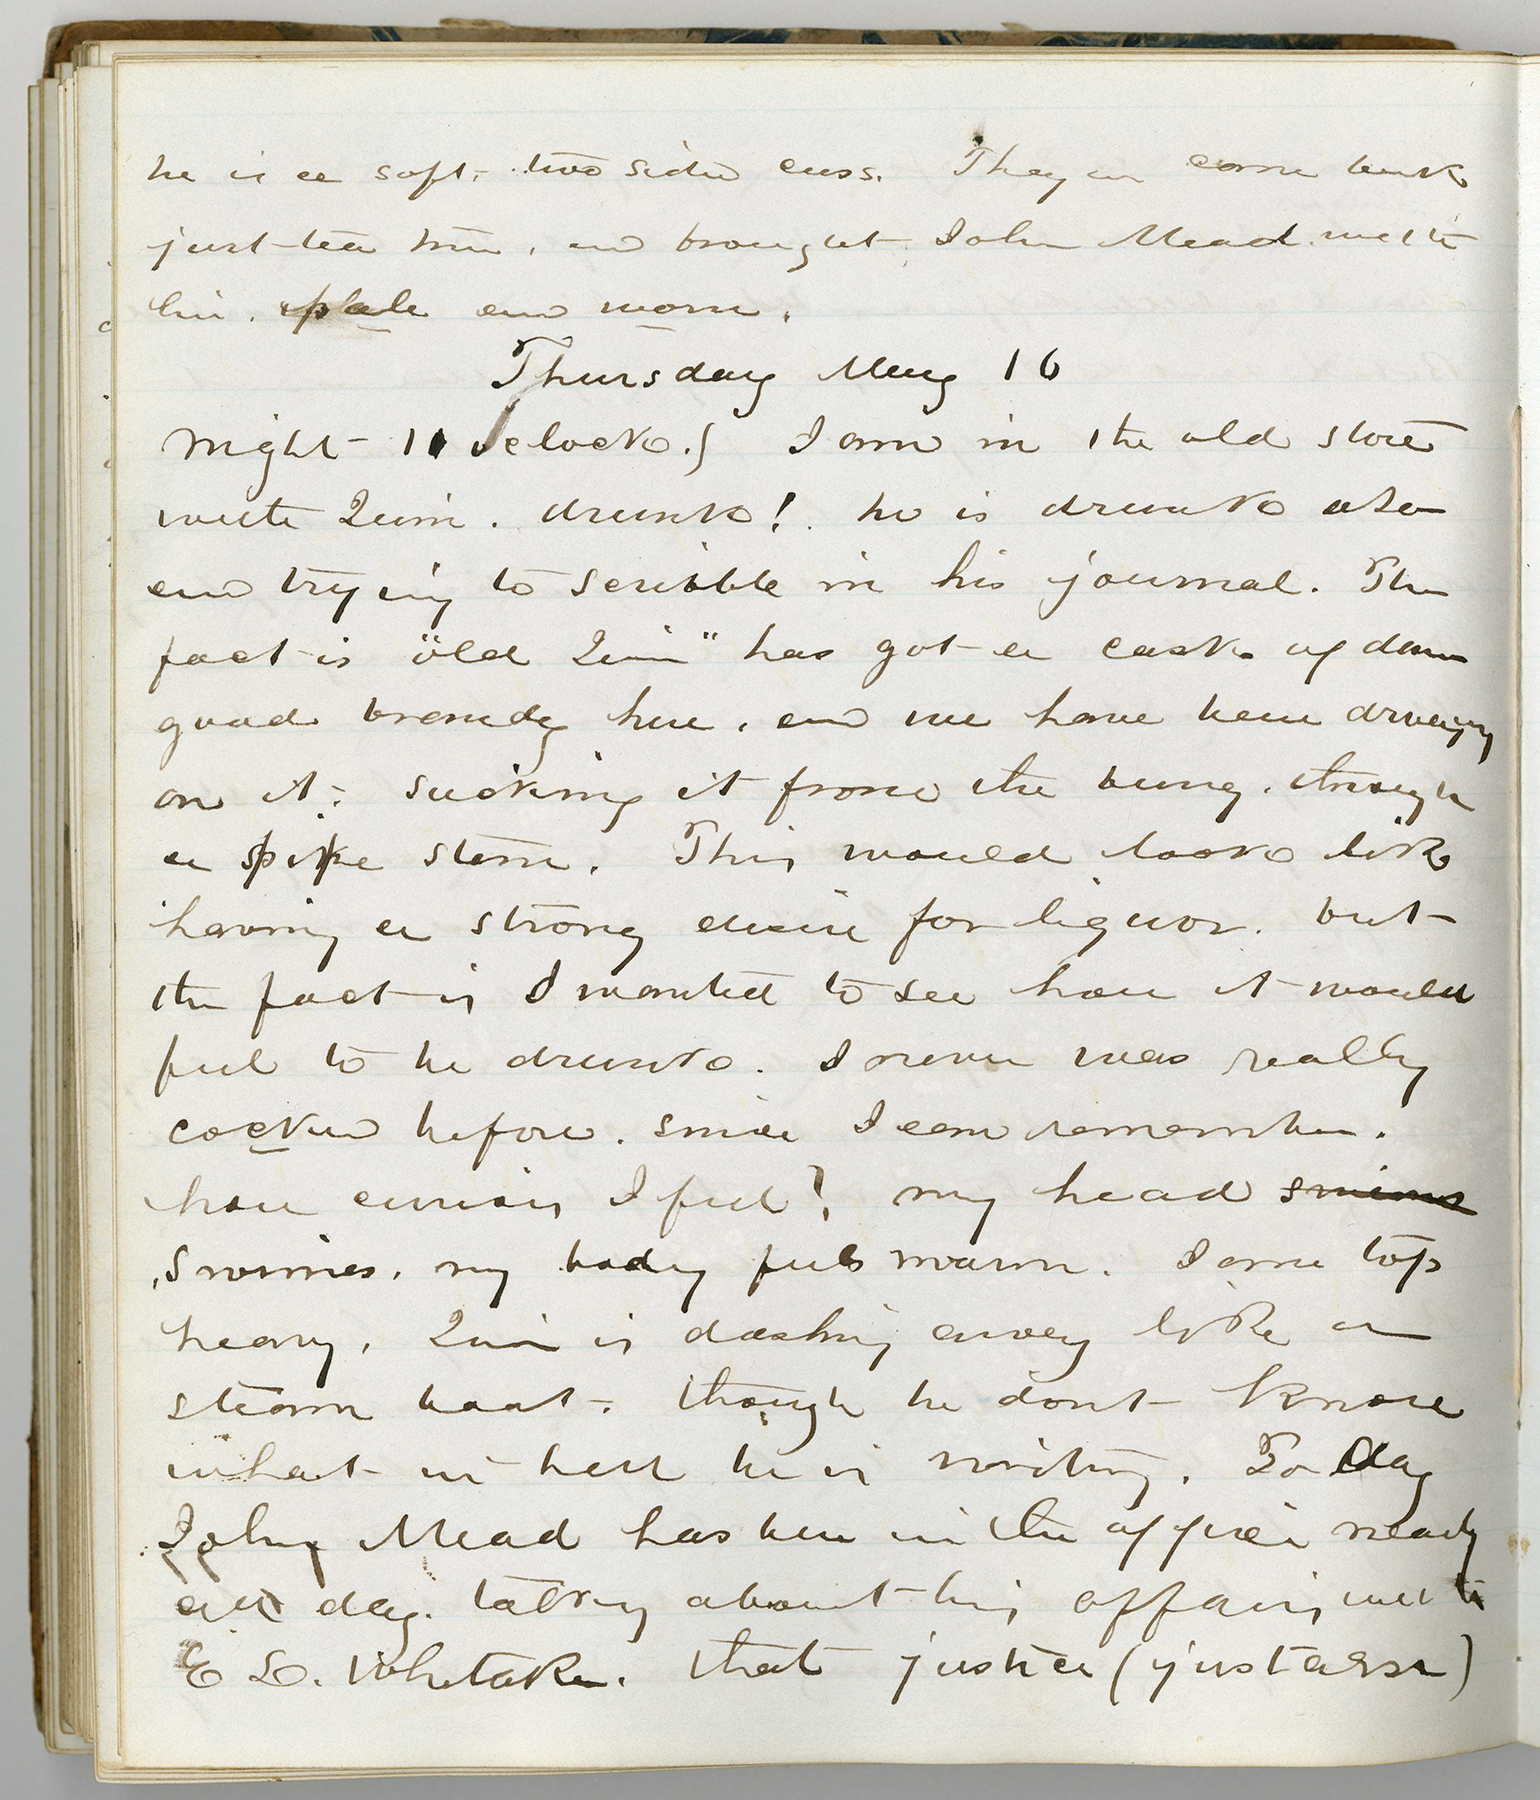 he is a soft, two sided cuss. They all come back
just tea time, and brought John Mead with
him. pale and worn.
Thursday May 16
Night 11 Oclock.) I am in the old store
with Quin. drunk! he is drunk also
and trying to scribble in his journal. The
fact is "old Quin" has got a cask of damn
good brandy here, and we have been drawing
on it; sucking it from the bung, through
a pipe stem. This would look like
having a strong desire for liquor. but
the fact is I wanted to see how it would
feel to be drunk. I never was really
cocked before. since I can remember.
how curious I feel! my head swims
swimes. my body feels warm. I am top
heavy. Quin is dashing away like a
steam boat; though he dont know
what in hell he is writing. To Day
John Mead has been in the office nearly
all day. talking about his affairs with
E L. Whitaker. that justice (justasse)